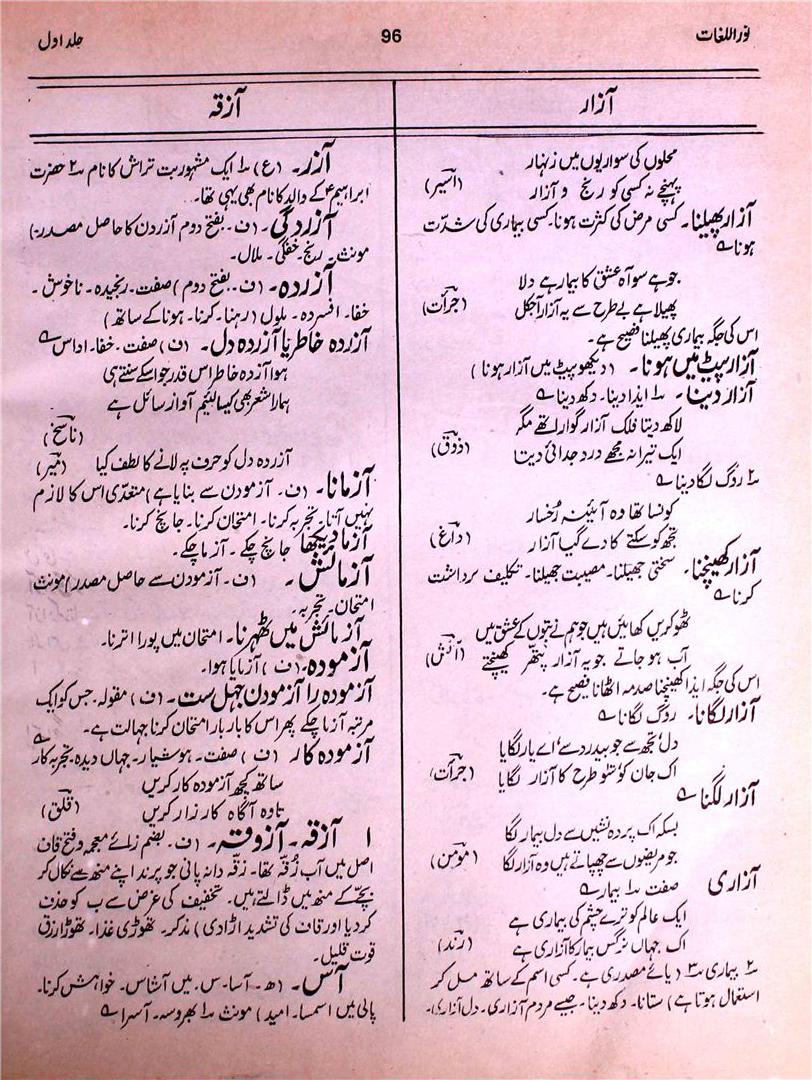 نور اللغات
96
جلد اول
آزار
محلوں کی سواریوں میں زنہار
پہنچے نہ کسی کو رنج و آزار (اسیر)
آزار پھیلنا۔ کسی مرض کی کثرت ہونا۔ کسی بیماری کی شدّت
ہونا ؎
جو ہے سو آہ عشق کا بیمار ہے دلا
پھیلا ہے بے طرح سے یہ آزار آجکل (جرأت)
اس کی جگہ بیماری پھیلنا فصیح ہے۔
آزار پیٹ میں ہونا۔ (دیکھو پیٹ میں آزار ہونا)
آزار دینا۔ ۱ ایذا دینا۔ دکھ دینا ؎
لاکھ دیتا فلک آزار گوارا تھے مگر
ایک تیرا نہ مجھے درد جدائی دیتا (ذوق)
۲ روگ لگا دینا ؎
کونسا تھا وہ آئینہ رُخسار
تجھ کو سکتے کا دے گیا آزار (داغ)
آزار کھینچنا۔ سختی جھیلنا۔ مصیبت جھیلنا۔ تکلیف برداشت
کرنا ؎
ٹھوکریں کھائیں ہیں جو ہم نے بتوں کے عشق میں
آب ہو جاتے جو یہ آزار پتھر کھینچتے (آتش)
اس کی جگہ ایذا کھینچنا صدمہ اٹھانا فصیح ہے۔
آزار لگانا۔ روگ لگانا ؎
دل تجھ سے جو بیدرد سے اے یار لگایا
اک جان کو سَو طرح کا آزار لگایا (جرأت)
آزار لگنا ؎
بسکہ اک پردہ نشیں سے دل بیمار لگا
جو مریضوں سے چھپاتے ہیں وہ آزار لگا (مومن)
آزاری صفت ۱ بیمار ؎
ایک عالم کو ترے چشم کی بیماری ہے
اک جہاں نرگس بیمار کا آزاری ہے (رند)
۲ بیماری ۳ (یائے مصدری ہے۔ کسی اسم کے ساتھ مل کر
استعمال ہوتا ہے) ستانا۔ دکھ دینا۔ جیسے مردم آزاری۔ دل آزاری۔
آزقہ
آزر۔ (ع) ۱ ایک مشہور بت تراش کا نام ۲ حضرت
ابراہیمؑ کے والد کا نام بھی یہی تھا۔
آزردگی۔ (ف۔ بفتح دوم آزردن کا حاصل مصدر)
مونث۔ رنج۔ خفگی۔ ملال۔
آزردہ۔ (ف۔ بفتح دوم) صفت۔ رنجیدہ۔ ناخوش۔
خفا۔ افسردہ۔ ملول (رہنا۔ کرنا۔ ہونا کے ساتھ)
آزردہ خاطر یا آزردہ دل۔ (ف) صفت۔ خفا۔ اداس ؎
ہوا آزردہ خاطر اس قدر جو اسکے سنتے ہی
ہمارا شعر بھی کیسا لئیم آواز سائل ہے
(ناسخ)
آزردہ دل کو حرف پہ لانے کا لطف کیا (میر)
آزمانا۔ (ف۔ آزمودن سے بنایا ہے) متعدّی اس کا لازم
نہیں آتا۔ تجربہ کرنا۔ امتحان کرنا۔ جانچ کرنا۔
آزما دیکھا جانچ چکے۔ آزما چکے۔
آزمائش۔ (ف۔ آزمودن سے حاصل مصدر) مونث
امتحان۔ تجربہ۔
آزمائش میں ٹھہرنا۔ امتحان میں پورا اترنا۔
آزمودہ۔ (ف) آزمایا ہوا۔
آزمودہ را آزمودن جہل ست۔ (ف) مقولہ۔ جس کو ایک
مرتبہ آزما چکے پھر اس کا بار بار امتحان کرنا جہالت ہے۔
آزمودہ کار (ف) صفت۔ ہوشیار۔ جہاں دیدہ۔ تجربہ کار ؎
ساتھ کچھ آزمودہ کار کریں
تا وہ آگاہ کارزار کریں (قلق)
ا آزقہ۔ آزوقہ۔ (ف۔ بضم زائے معجمہ و فتح قاف
اصل میں آب زُقّہ تھا۔ زقّہ دانہ پانی جو پرند اپنے منھ سے نکال کر
بچّے کے منھ میں ڈالتے ہیں۔ تخفیف کی غرض سے ب کو حذف
کر دیا اور قاف کی تشدید اڑا دی) مذکر۔ تھوڑی غذا۔ تھوڑا رزق
قوت قلیل۔
آس۔ (ھ۔ آسا۔ س۔ میں آشاس۔ خواہش کرنا۔
پالی میں اسمسا۔ امید) مونث ۱ بھروسہ۔ آسرا ؎